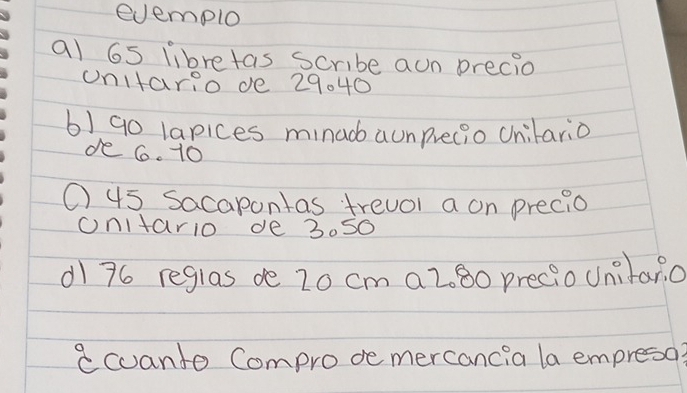 evempio
a) 65 libretas scribe aun precio
unitario de 29.40
b) 90 lapices minado aun precio unitario
de 6.70
c) 45 sacapuntas trevol a un precio
unitario de 3.50
d) 76 reglas de 20 cm a 2.80 precio unitario
¿cuanto compro de mercancia la empresa?